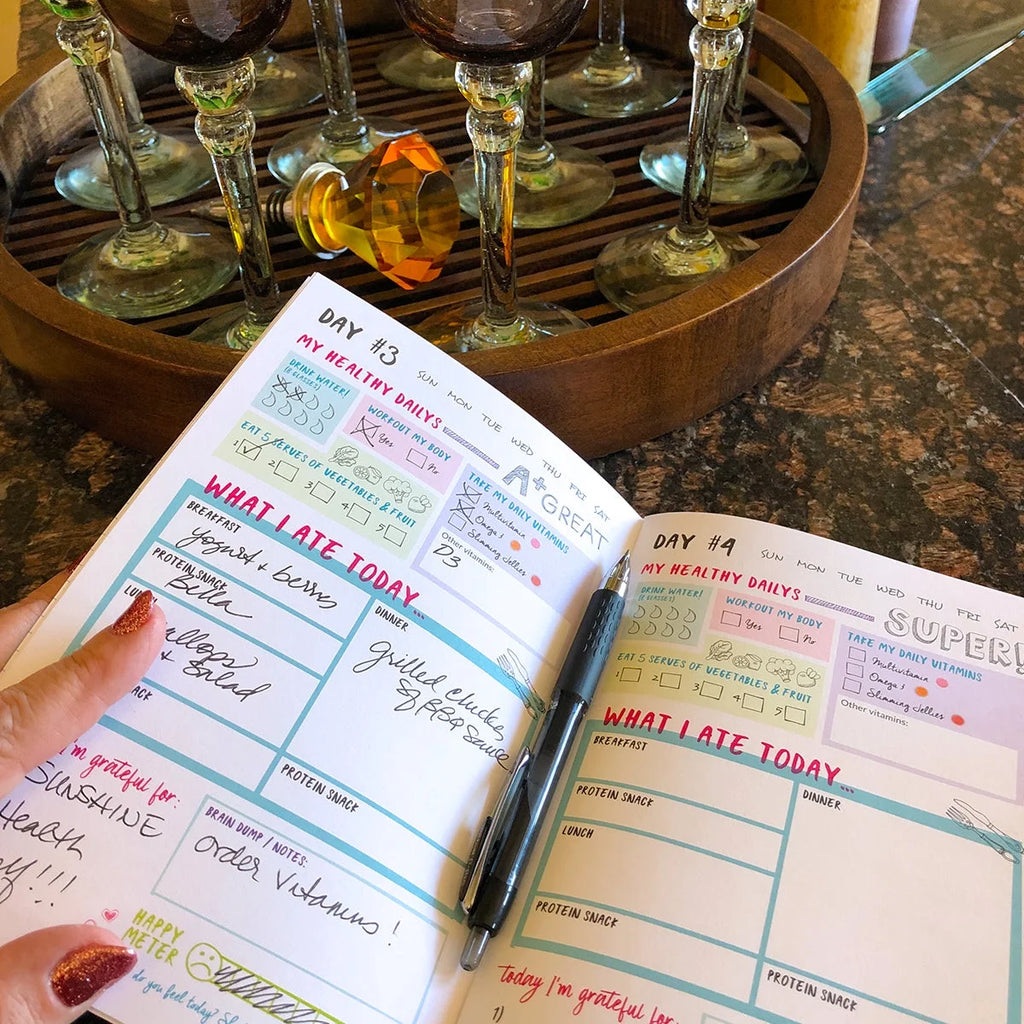 DAY #3
SUN MON TUE WED THU FRI SAT
MY HEALTHY DAILYS
A+ GREAT
DRINK WATER!
(8 GLASSES)
WORKOUT MY BODY
Yes
No
EAT 5 SERVES OF VEGETABLES & FRUIT
1 2 3 4 5
TAKE MY DAILY VITAMINS
Multivitamin
Omega 3
Slimming Jellies
Other vitamins:
D3
WHAT I ATE TODAY...
BREAKFAST
yogurt + berries
PROTEIN SNACK
Bella
& Salad
DINNER
Grilled Chicken
BBQ Sauce
PROTEIN SNACK
I'm grateful for:
SUNSHINE
Health
BRAIN DUMP / NOTES:
order vitamins!
HAPPY
METER
do you feel today?
DAY #4
SUN MON TUE WED THU FRI SAT
MY HEALTHY DAILYS
SUPER!
DRINK WATER!
(8 GLASSES)
WORKOUT MY BODY
Yes
No
EAT 5 SERVES OF VEGETABLES & FRUIT
1 2 3 4 5
TAKE MY DAILY VITAMINS
Multivitamin
Omega 3
Slimming Jellies
Other vitamins:
WHAT I ATE TODAY...
BREAKFAST
PROTEIN SNACK
LUNCH
PROTEIN SNACK
DINNER
PROTEIN SNACK
today I'm grateful for:
1)